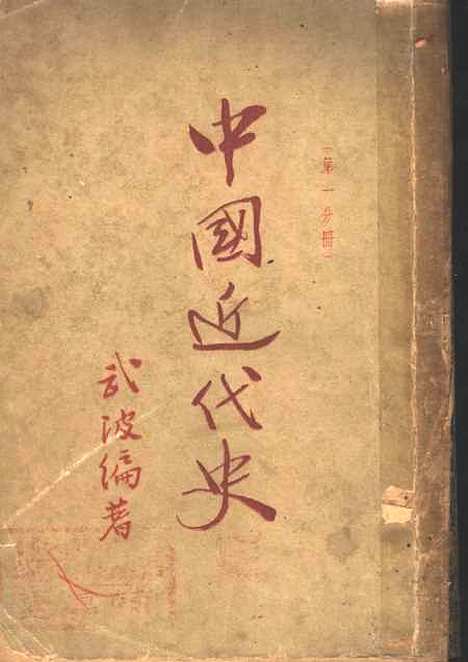 （第一分冊）
中國近代史
武波編著